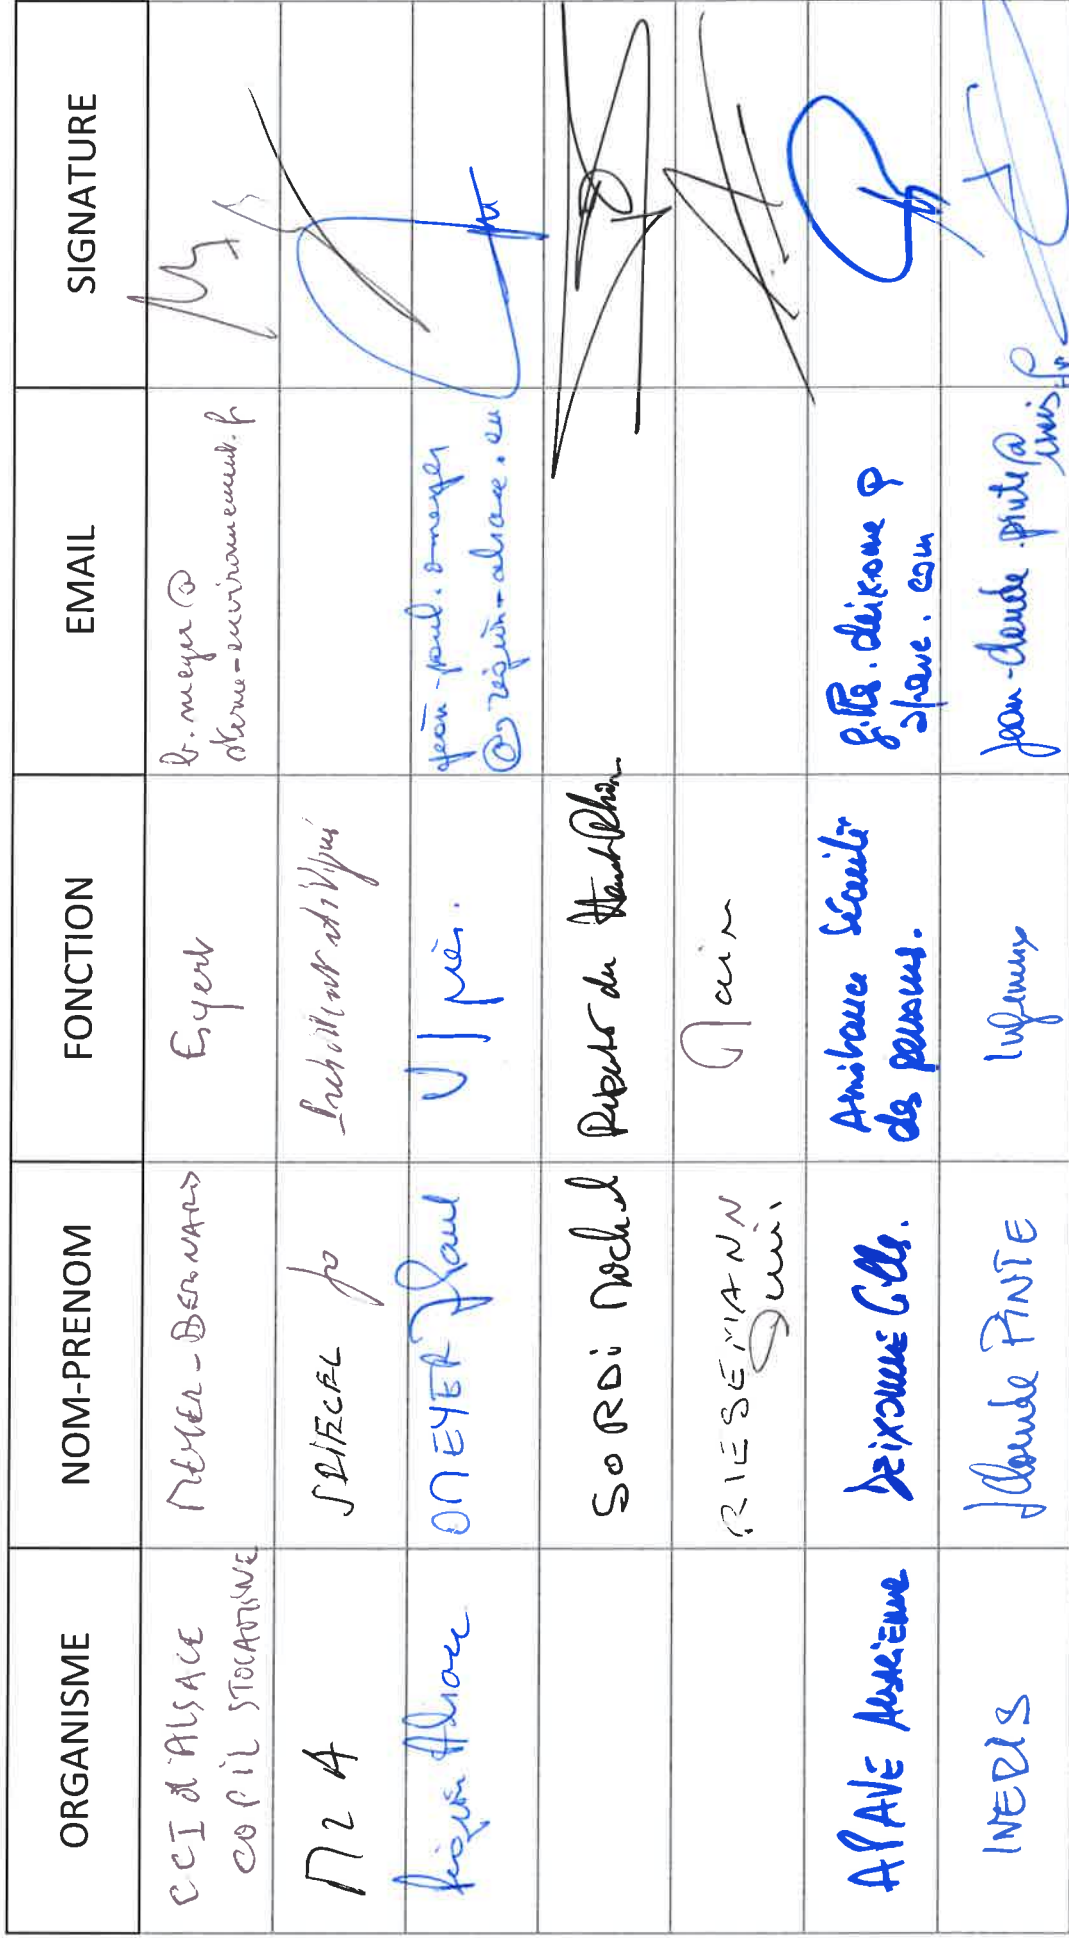 ORGANISME NOM-PRENOM FONCTION EMAIL SIGNATURE
CCI d'ALSACE
COPIL STOCAMINE
MEYER-BERNARD
Expert
b.meyer@
sterne-environnement.fr
M2A
SPIEGEL Jo
Région Alsace
OMEYER JPaul
V/prés.
jean-paul.omeyer
@region-alsace.eu
SORDI Michel
Député du Haut Rhin
RIESEMANN
Maire
APAVE Alsacienne
Deixonne Gilles.
Assistance Sécurité
des personnes.
gilles.deixonne@
apave.com
INERIS
JClaude PINTE
Ingénieur
jean-claude.pinte@
ineris.fr